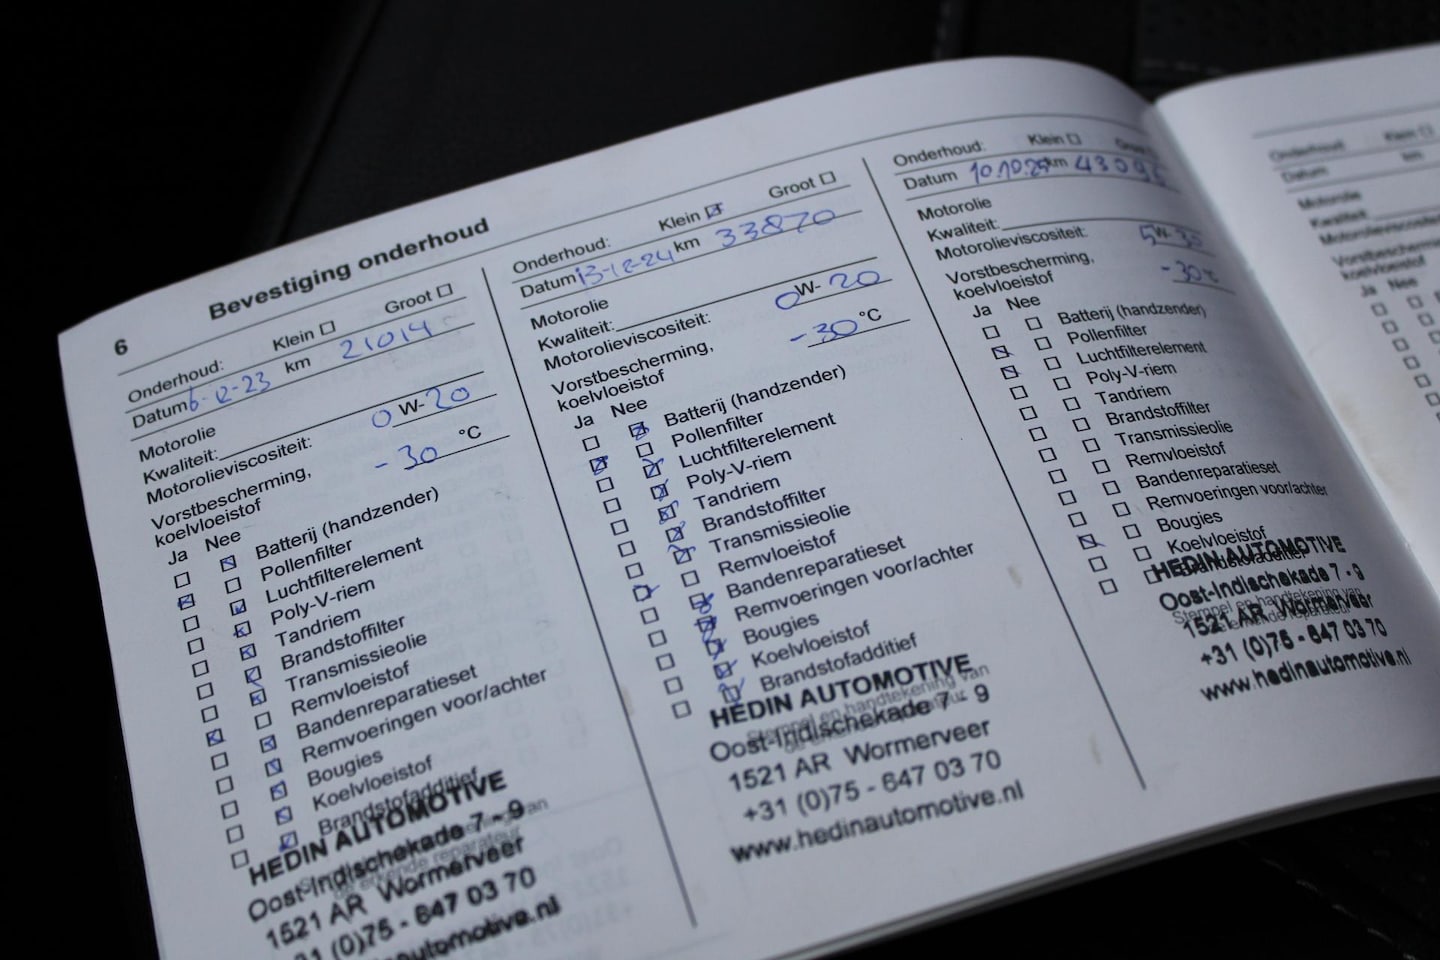 6
Bevestiging onderhoud
Onderhoud: Klein Groot
Datum 6-12-23 km 21014
Motorolie
Kwaliteit:
Motorolieviscositeit: 0 W- 20
Vorstbescherming,
koelvloeistof - 30 °C
Ja Nee
Batterij (handzender)
Pollenfilter
Luchtfilterelement
Poly-V-riem
Tandriem
Brandstoffilter
Transmissieolie
Remvloeistof
Bandenreparatieset
Remvoeringen voor/achter
Bougies
Koelvloeistof
Brandstofadditief
HEDIN AUTOMOTIVE
Oost-Indischekade 7 - 9
de erkende reparateur
1521 AR Wormerveer
(0)75 - 647 03 70
Onderhoud: Klein Groot
Datum 13-12-24 km 33870
Motorolie
Kwaliteit:
Motorolieviscositeit: 0 W- 20
Vorstbescherming,
koelvloeistof - 30 °C
Ja Nee
Batterij (handzender)
Pollenfilter
Luchtfilterelement
Poly-V-riem
Tandriem
Brandstoffilter
Transmissieolie
Remvloeistof
Bandenreparatieset
Remvoeringen voor/achter
Bougies
Koelvloeistof
Brandstofadditief
HEDIN AUTOMOTIVE
Stempel en handtekening van
Oost-Indischekade 7 - 9
de erkende reparateur
1521 AR Wormerveer
+31 (0)75 - 647 03 70
www.hedinautomotive.nl
Onderhoud: Klein
Datum km
Motorolie
Kwaliteit:
Motorolieviscositeit: 5 W- 30
Vorstbescherming,
koelvloeistof - 30 °C
Ja Nee
Batterij (handzender)
Pollenfilter
Luchtfilterelement
Poly-V-riem
Tandriem
Brandstoffilter
Transmissieolie
Remvloeistof
Bandenreparatieset
Remvoeringen voor/achter
Bougies
Koelvloeistof
Brandstofadditief
HEDIN AUTOMOTIVE
Oost-Indischekade 7 - 9
Stempel en handtekening van
1521 AR Wormerveer
de erkende reparateur
+31 (0)75 - 647 03 70
www.hedinautomotive.nl
Onderhoud Klein
Datum km
Motorolie
Kwaliteit:
Motorolieviscositeit
koelvloeistof
Ja Nee